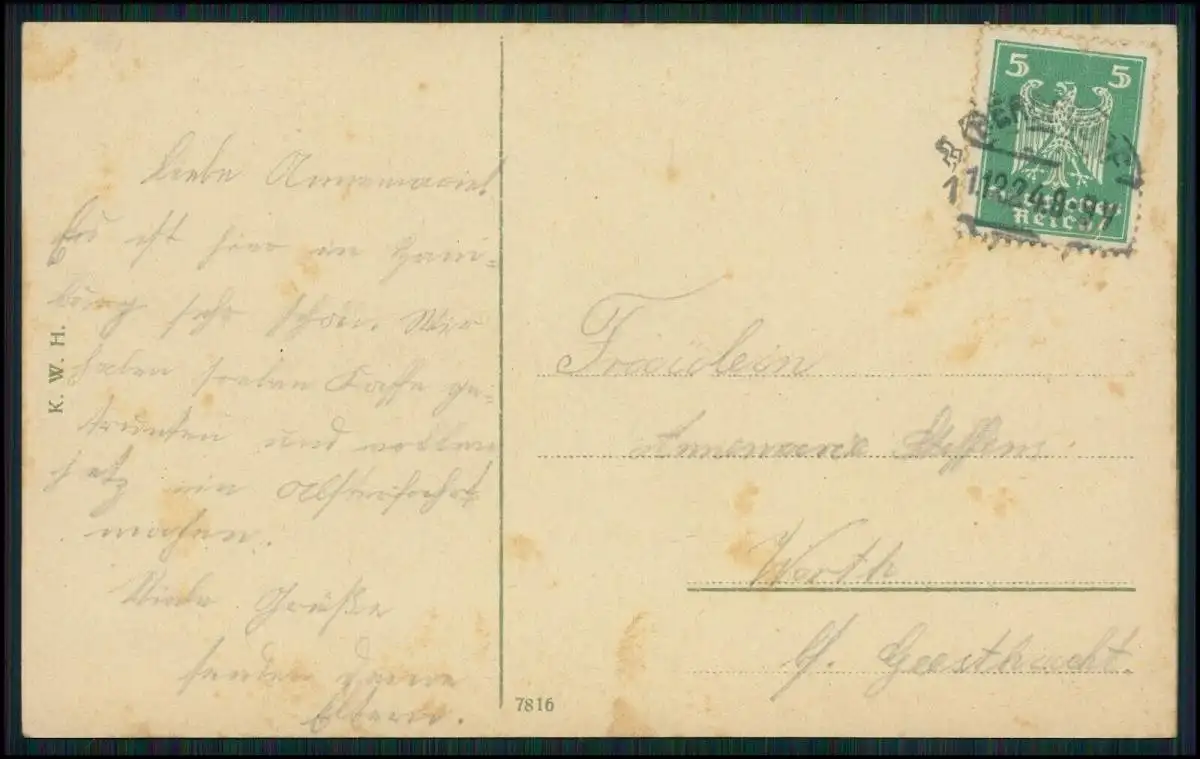 Liebe Annemarie!
Es ist hier in Ham-
burg sehr schön. Wir
haben soeben Kaffe ge-
trunken und wollen
jetz ein Abstecher
machen.
Viele Grüße
senden Deine
Eltern.
K. W. H.
7816
5 5
Reich
11.12.24.8-9V
Fräulein
Annemarie Steffens
Worth
b/. Geesthacht.